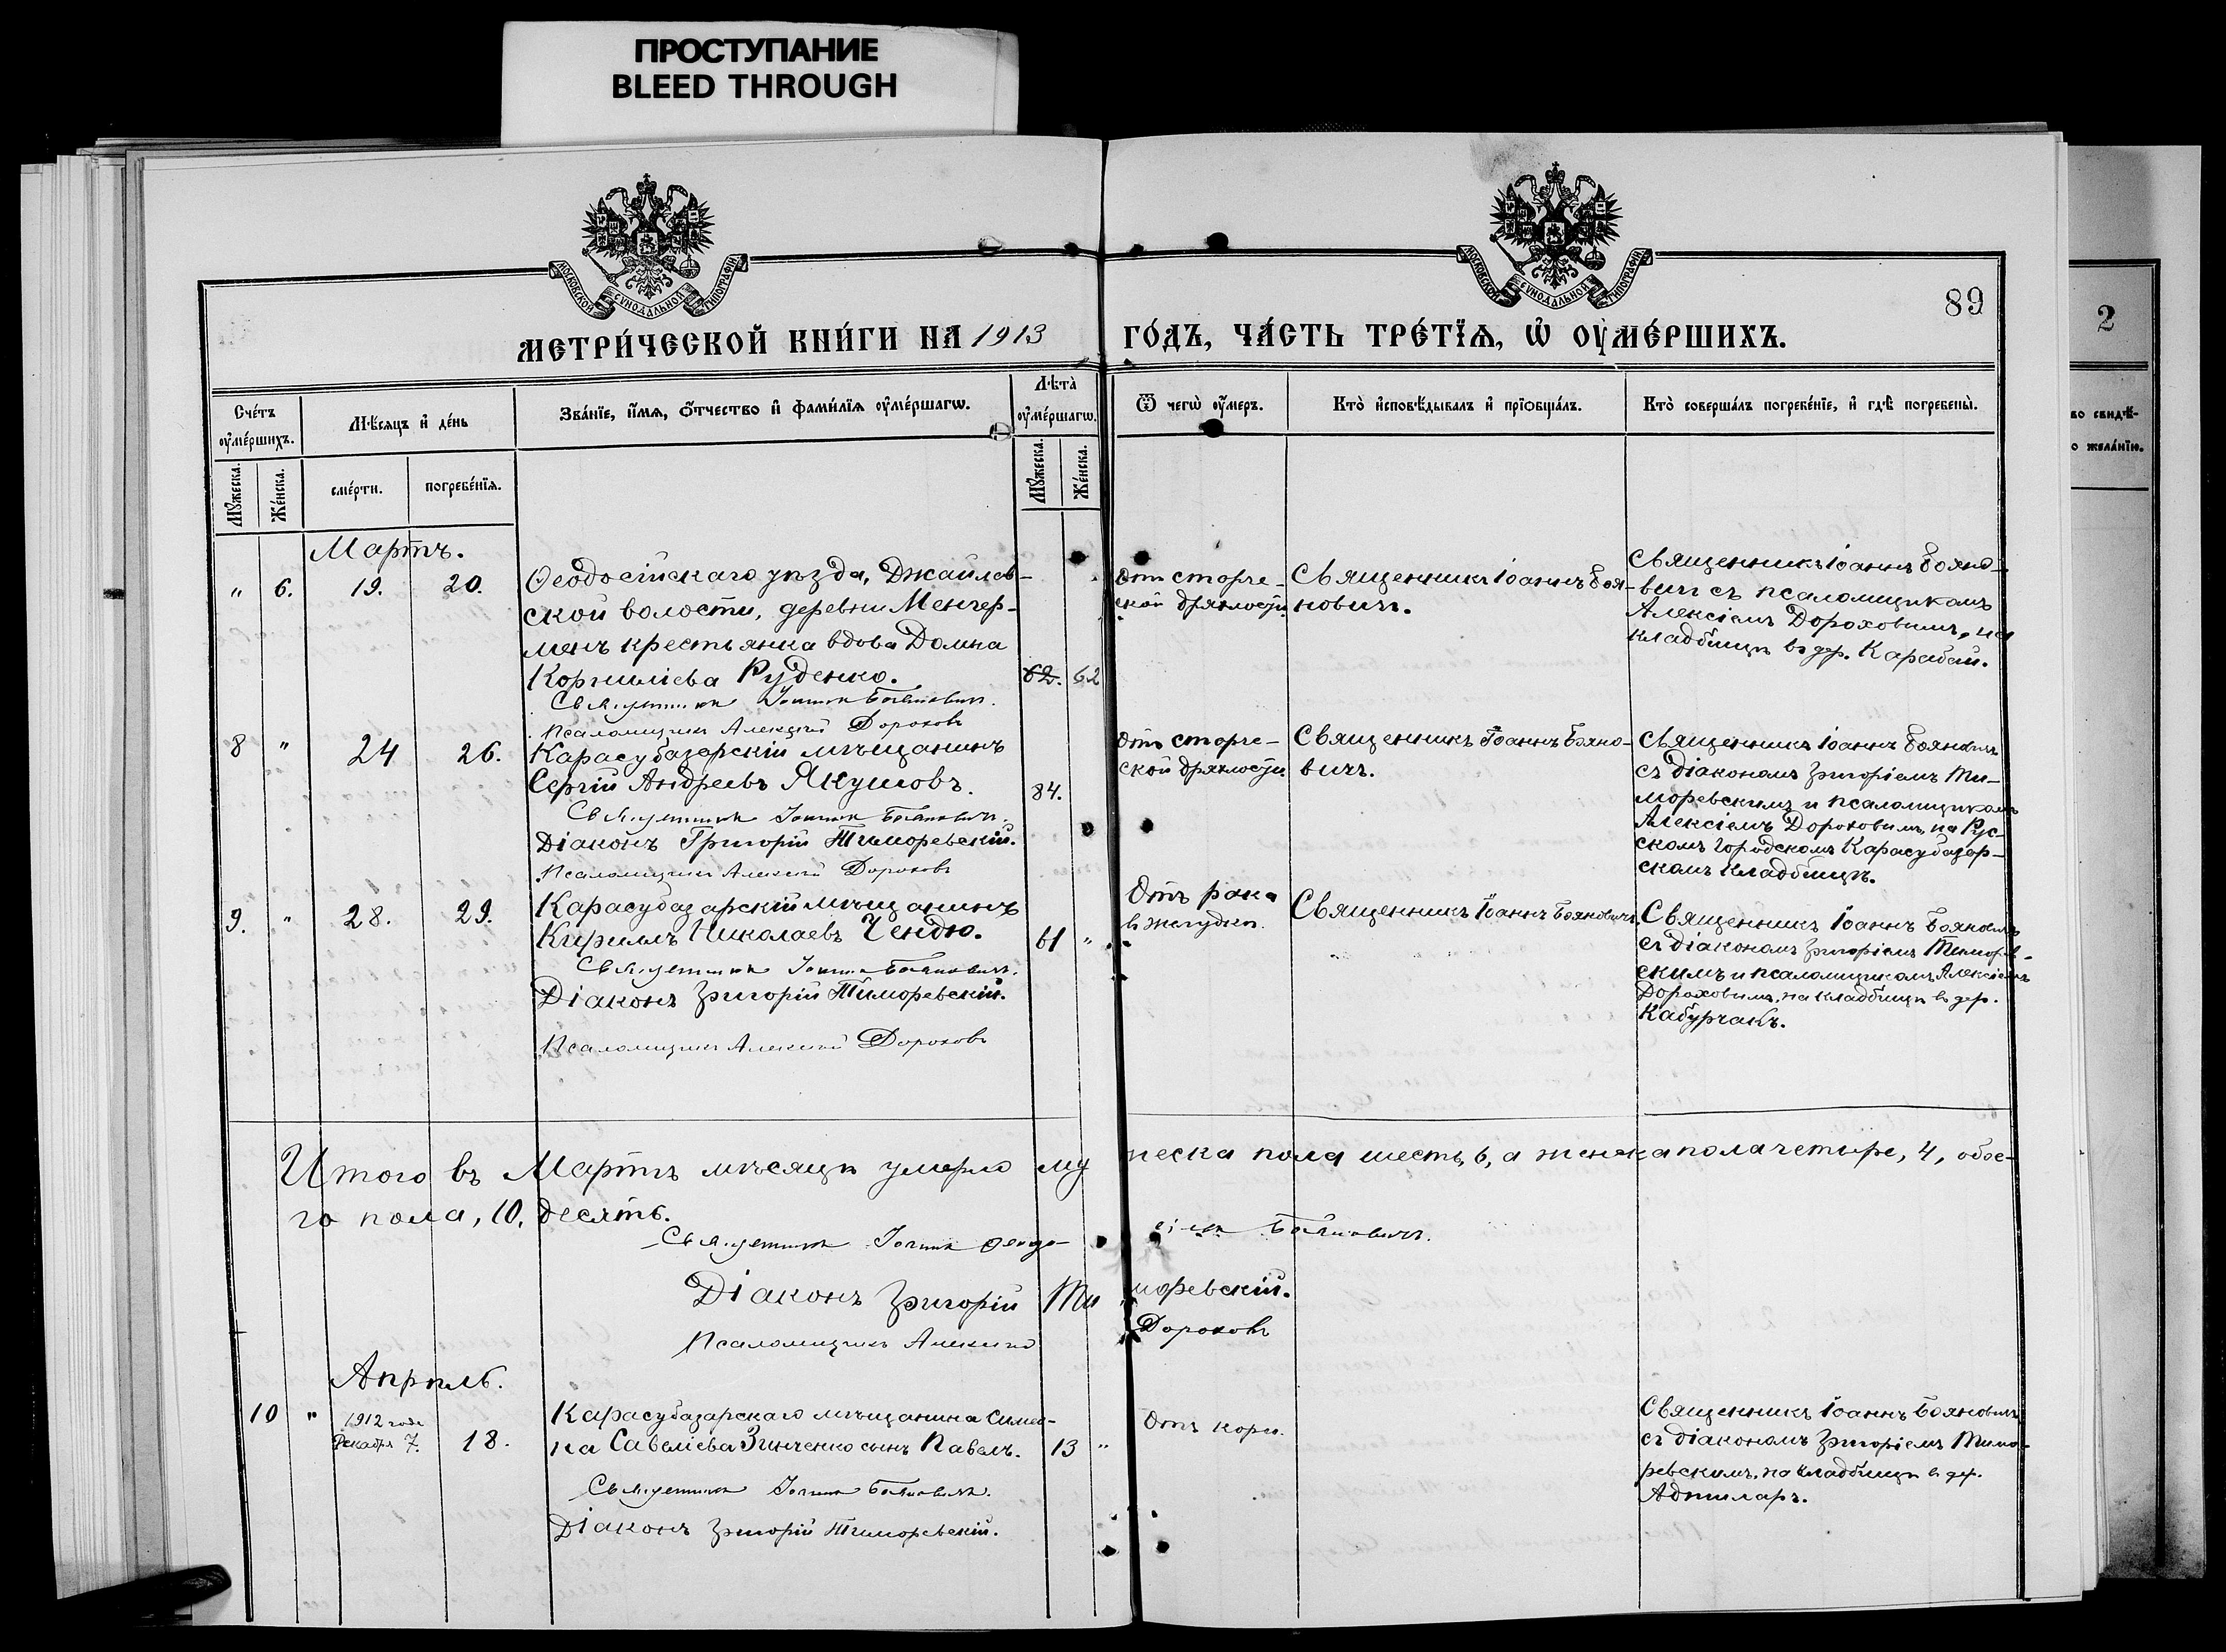 ПРОСТУПАНИЕ
BLEED THROUGH
МОСКОВСКОЙ СѴНОДАЛЬНОЙ ТИПОГРАФІИ
МОСКОВСКОЙ СѴНОДАЛЬНОЙ ТИПОГРАФІИ
89
2
МЕТРИ́ЧЕСКОЙ КНИ́ГИ НА 1913 ГО́ДЪ, ЧА́СТЬ ТРЕ́ТЇѦ, Ѡ҆ ОУ҆МЕ́РШИХЪ.
Сче́тъ оу҆ме́ршихъ.
Мѣ́сяцъ и҆ де́нь
Зва́нїе, и҆́мѧ, ѻ҆́тчество и҆ фами́лїѧ оу҆ме́ршагѡ.
Лѣта̀ оу҆ме́ршагѡ.
Ѿ чегѡ̀ оу҆́меръ.
Кто̀ и҆сповѣ́дывалъ и҆ прїѡбща́лъ.
Кто̀ соверша́лъ погребе́нїе, и҆ гдѣ̀ погребены̀.
Мꙋ́жеска.
Же́нска.
сме́рти.
погребе́нїѧ.
Мꙋ́жеска.
Же́нска.
во свидѣ́-
о жела́нїю.
Мартъ.
" 6. 19. 20.
Ѳеодосійскаго уѣзда, Джайлав-
ской волости, деревни Менгер-
менъ крестьянка вдова Домна
Корнилiева Руденко. 62. 62
Священникъ Іоаннъ Бояновичъ.
Псаломщикъ Алексѣй Дороховъ
Отъ старче-
ской дряхлости.
Священникъ Іоаннъ Боя-
новичъ.
Священникъ Іоаннъ Бояно-
вичъ съ псаломщикомъ
Алексіемъ Дороховымъ, на
кладбищѣ въ дер. Карабай.
8 " 24 26.
Карасубазарскій мѣщанинъ
Сергій Андреевъ Якушовъ. 84.
Священникъ Іоаннъ Бояновичъ.
Діаконъ Григорій Тиморевскій.
Псаломщикъ Алексѣй Дороховъ
Отъ старче-
ской дряхлости.
Священникъ Іоаннъ Бояно-
вичъ.
Священникъ Іоаннъ Бояновичъ
съ діакономъ Григоріемъ Ти-
моревскимъ и псаломщикомъ
Алексіемъ Дороховымъ, на Рус-
скомъ городскомъ Карасубазар-
скомъ кладбищѣ.
9. " 28. 29.
Карасубазарскій мѣщанинъ
Кириллъ Николаевъ Чендю. 61 "
Священникъ Іоаннъ Бояновичъ.
Діаконъ Григорій Тиморевскій.
Псаломщикъ Алексѣй Дороховъ
Отъ рака
въ желудкѣ.
Священникъ Іоаннъ Бояновичъ.
Священникъ Іоаннъ Бояновичъ
съ діакономъ Григоріемъ Тиморев-
скимъ и псаломщикомъ Алексіемъ
Дороховымъ, на кладбищѣ въ дер.
Кабурчакъ.
Итого въ Мартѣ мѣсяцѣ умерло мужеска пола шесть, 6, а женска пола четыре, 4, обое-
го пола, 10, десять.
Священникъ Іоаннъ Ѳеодосіевъ Бояновичъ.
Діаконъ Григорій Тиморевскій.
Псаломщикъ Алексѣй Дороховъ
Апрѣль.
10 " 1912 года
Декабря 7. 18.
Карасубазарскаго мѣщанина Симео-
на Савеліева Зинченко сынъ Павелъ. 13 "
Священникъ Іоаннъ Бояновичъ.
Діаконъ Григорій Тиморевскій.
Отъ кори.
Священникъ Іоаннъ Бояновичъ
съ діакономъ Григоріемъ Тимо-
ревскимъ, на кладбищѣ въ дер.